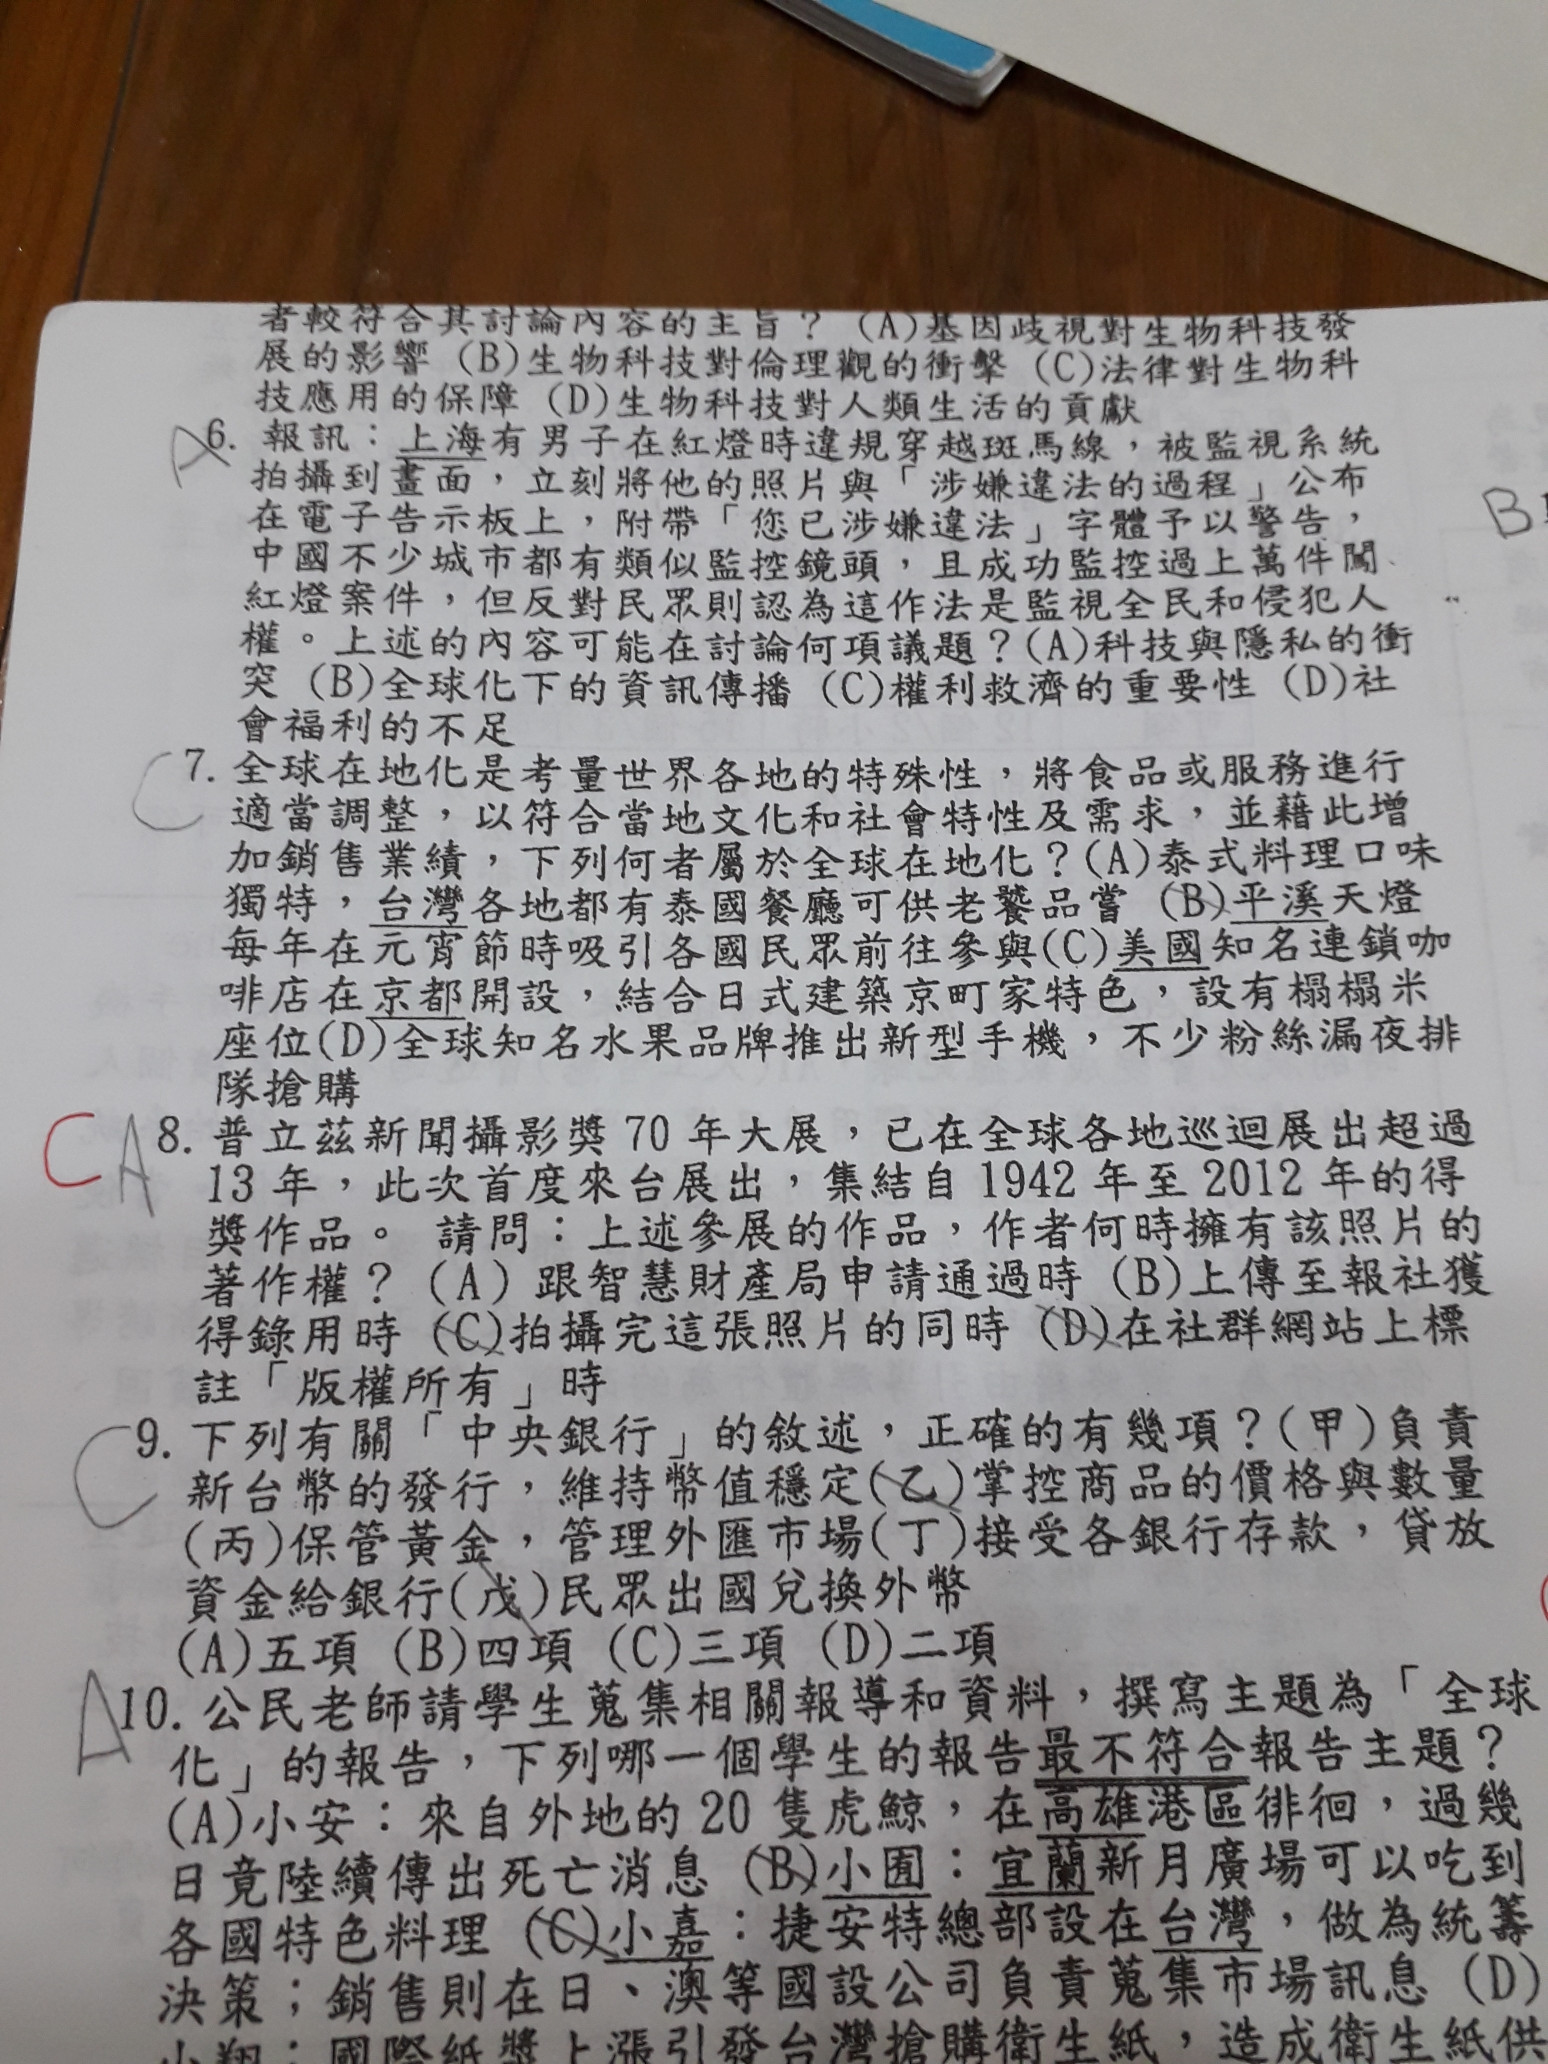 者較符合其討論內容的主旨？ (A)基因歧視對生物科技發
展的影響 (B)生物科技對倫理觀的衝擊 (C)法律對生物科
技應用的保障 (D)生物科技對人類生活的貢獻
A 6. 報訊：上海有男子在紅燈時違規穿越斑馬線，被監視系統
拍攝到畫面，立刻將他的照片與「涉嫌違法的過程」公布
在電子告示板上，附帶「您已涉嫌違法」字體予以警告，
B
中國不少城市都有類似監控鏡頭，且成功監控過上萬件闖
紅燈案件，但反對民眾則認為這作法是監視全民和侵犯人
權。上述的內容可能在討論何項議題？(A)科技與隱私的衝
突 (B)全球化下的資訊傳播 (C)權利救濟的重要性 (D)社
會福利的不足
C 7. 全球在地化是考量世界各地的特殊性，將食品或服務進行
適當調整，以符合當地文化和社會特性及需求，並藉此增
加銷售業績，下列何者屬於全球在地化？(A)泰式料理口味
獨特，台灣各地都有泰國餐廳可供老饕品嘗 (B)平溪天燈
每年在元宵節時吸引各國民眾前往參與(C)美國知名連鎖咖
啡店在京都開設，結合日式建築京町家特色，設有榻榻米
座位(D)全球知名水果品牌推出新型手機，不少粉絲漏夜排
隊搶購
C A 8. 普立茲新聞攝影獎 70 年大展，已在全球各地巡迴展出超過
13 年，此次首度來台展出，集結自 1942 年至 2012 年的得
獎作品。 請問：上述參展的作品，作者何時擁有該照片的
著作權？ (A) 跟智慧財產局申請通過時 (B)上傳至報社獲
得錄用時 (C)拍攝完這張照片的同時 (D)在社群網站上標
註「版權所有」時
C 9. 下列有關「中央銀行」的敘述，正確的有幾項？(甲)負責
新台幣的發行，維持幣值穩定(乙)掌控商品的價格與數量
(丙)保管黃金，管理外匯市場(丁)接受各銀行存款，貸放
資金給銀行(戊)民眾出國兌換外幣
(A)五項 (B)四項 (C)三項 (D)二項
A 10. 公民老師請學生蒐集相關報導和資料，撰寫主題為「全球
化」的報告，下列哪一個學生的報告最不符合報告主題？
(A)小安：來自外地的 20 隻虎鯨，在高雄港區徘徊，過幾
日竟陸續傳出死亡消息 (B)小囿：宜蘭新月廣場可以吃到
各國特色料理 (C)小嘉：捷安特總部設在台灣，做為統籌
決策；銷售則在日、澳等國設公司負責蒐集市場訊息 (D)
小翔：國際紙漿上漲引發台灣搶購衛生紙，造成衛生紙供